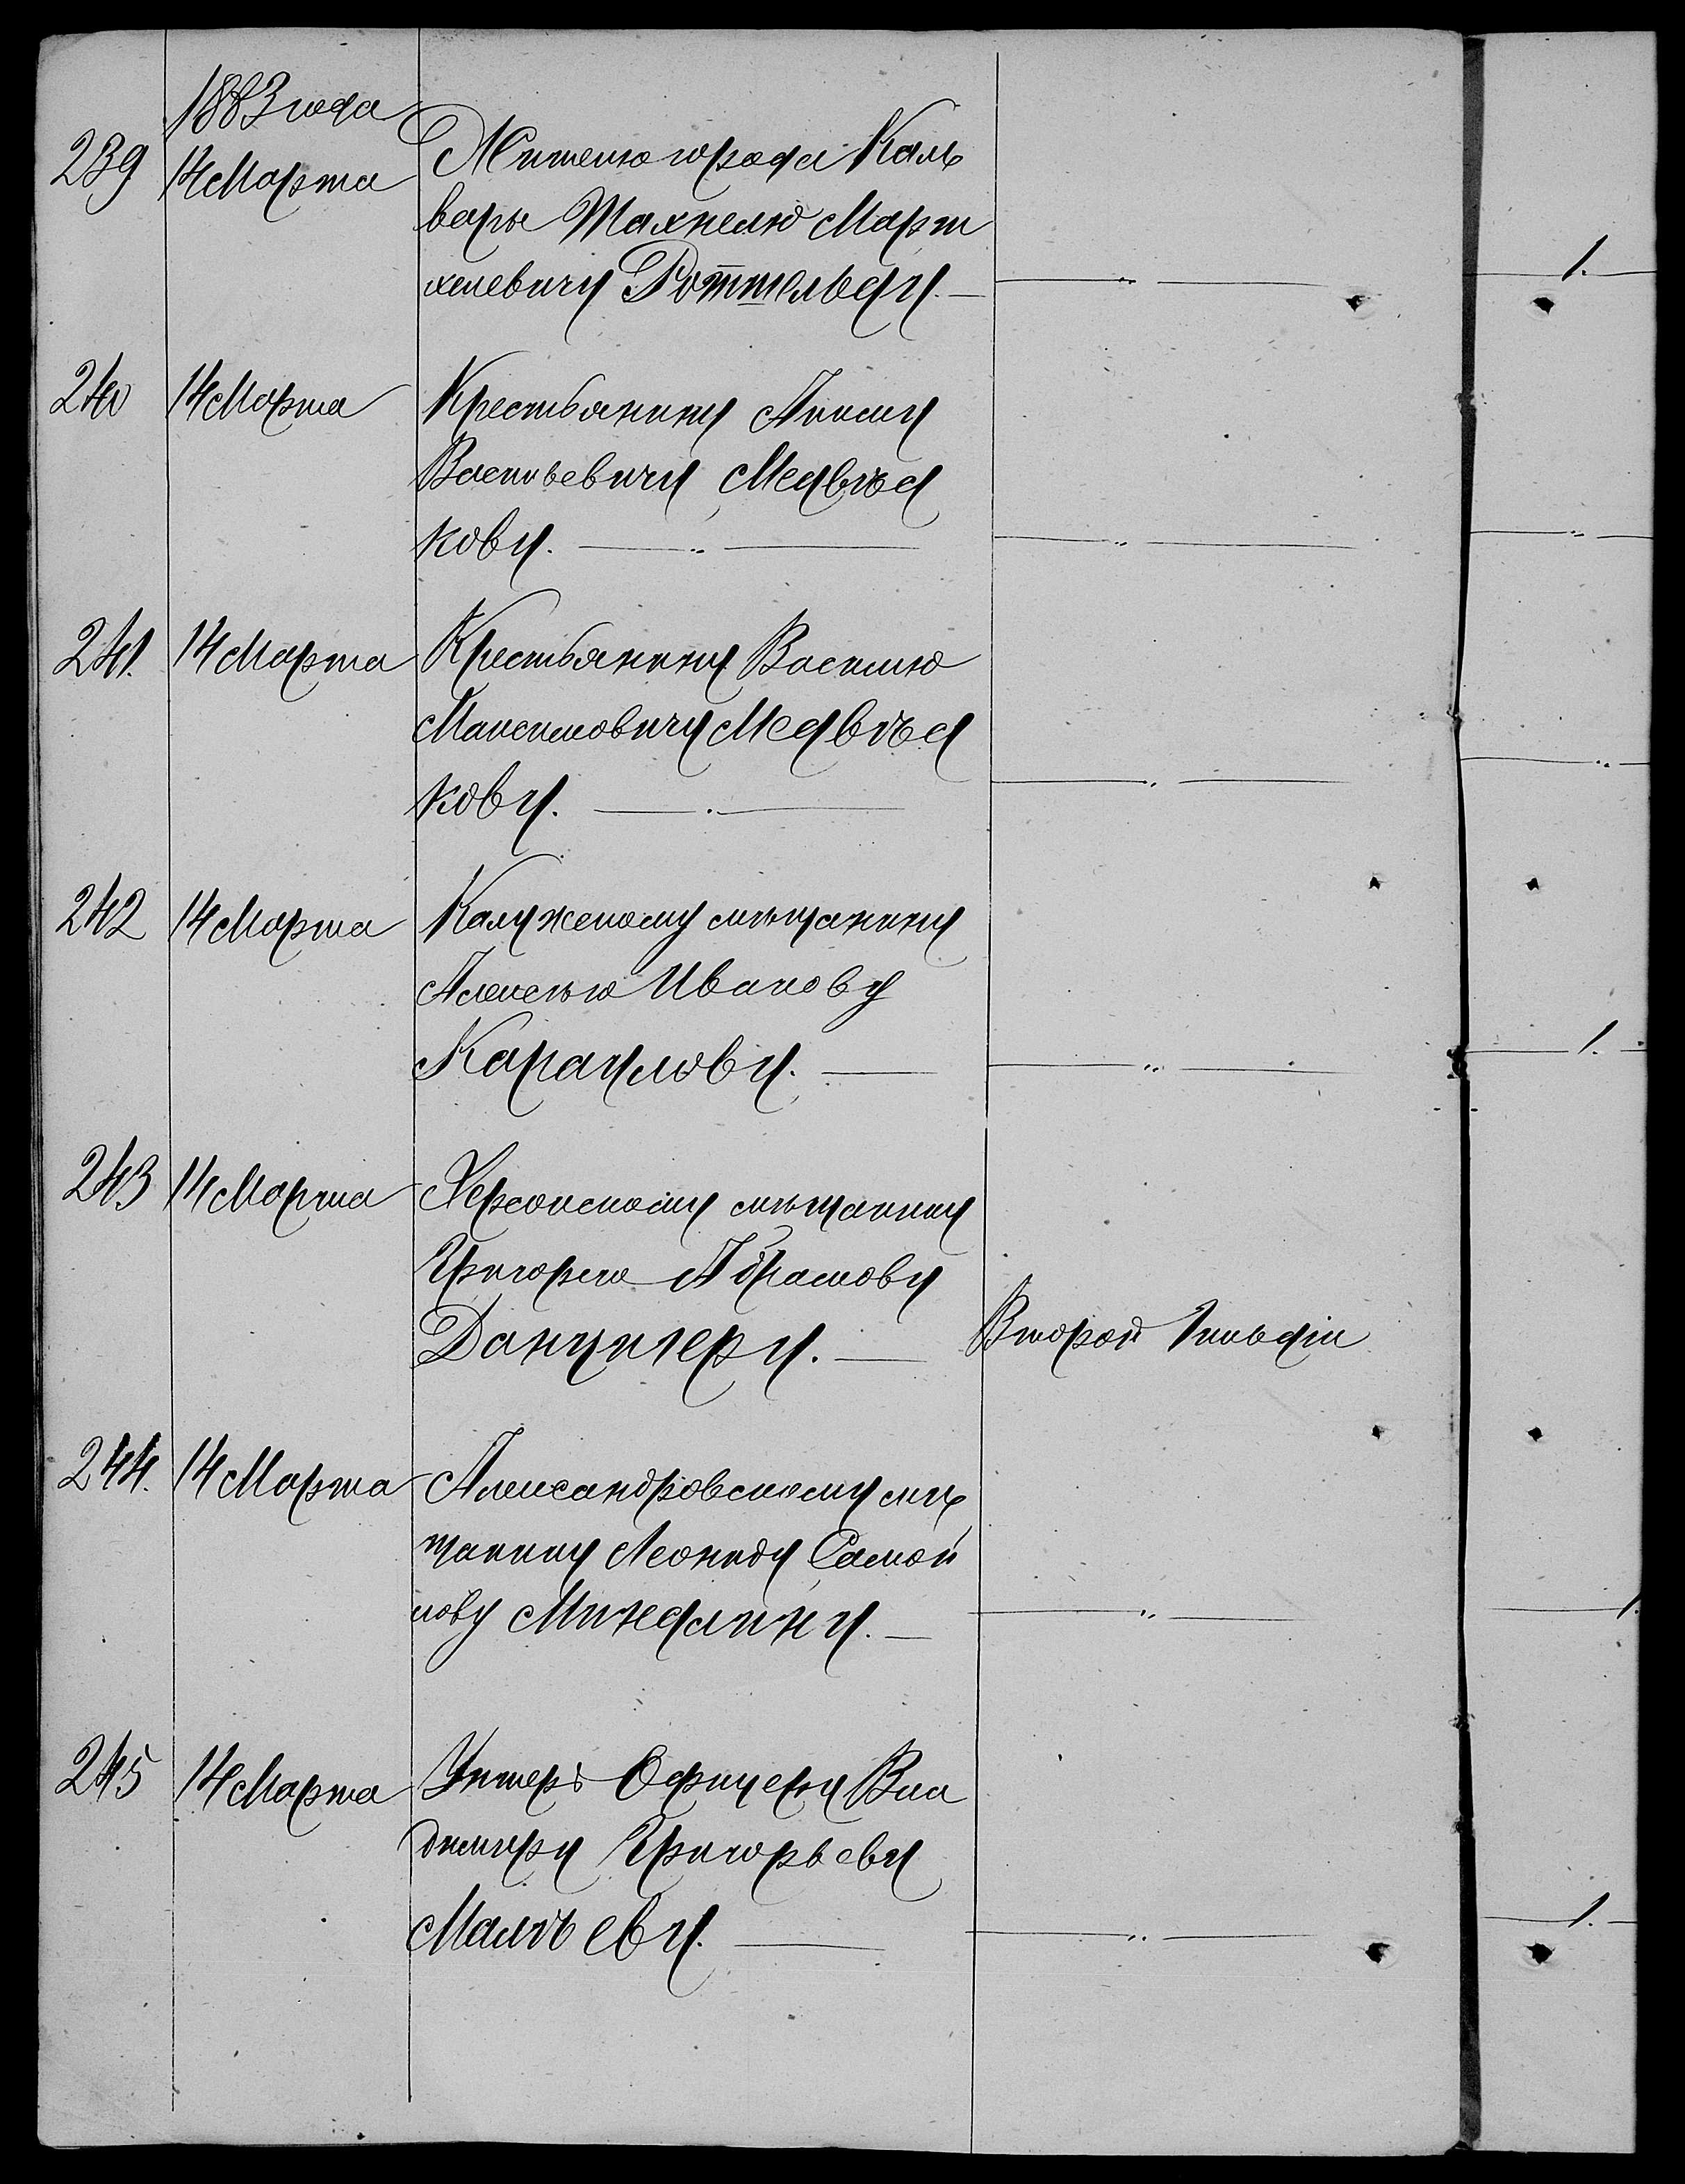 1883 года
239 14 Марта Жителю города Каль
вары
Роттельду. — „ — 1.
240 14 Марта Крестьянину
Васильевичу Медвѣд
кову. — „ — — „ — — „ —
241. 14 Марта Крестьянину Василію
Максимовичу Медвѣд
кову. — . — — „ — — „ —
242 14 Марта Калужскому мѣщанину
Алексѣю Иванову
Караулову. — — „ — 1.
243 14 Марта Херсонскому мѣщанину
Григорію Абрамову
Данцигеру. — Второй Гильдіи
244. 14 Марта Александровскому мѣ
щанину Леониду Самой
лову Минедлину. — — „ — 1.
245 14 Марта Унтеръ Офицеру Вла
димиру Григорьеву
Малѣеву. — — „ — 1.